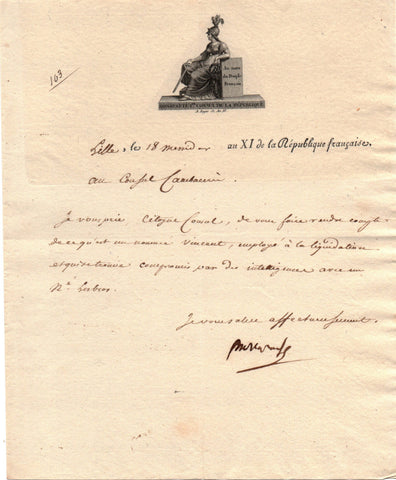 163
Au nom
du Peuple
Français
BONAPARTE 1er CONSUL DE LA RÉPUBLIQUE
Lille, le 18 messidor au XI de la République française.
au Consul Cambacérès
Je vous prie Citoyen Consul, de vous faire rendre compte
de ce qu'est un nommé Vincent, employé à la liquidation
et qui se trouve compromis par des intelligences avec un
Né
Je vous salue affectueusement.